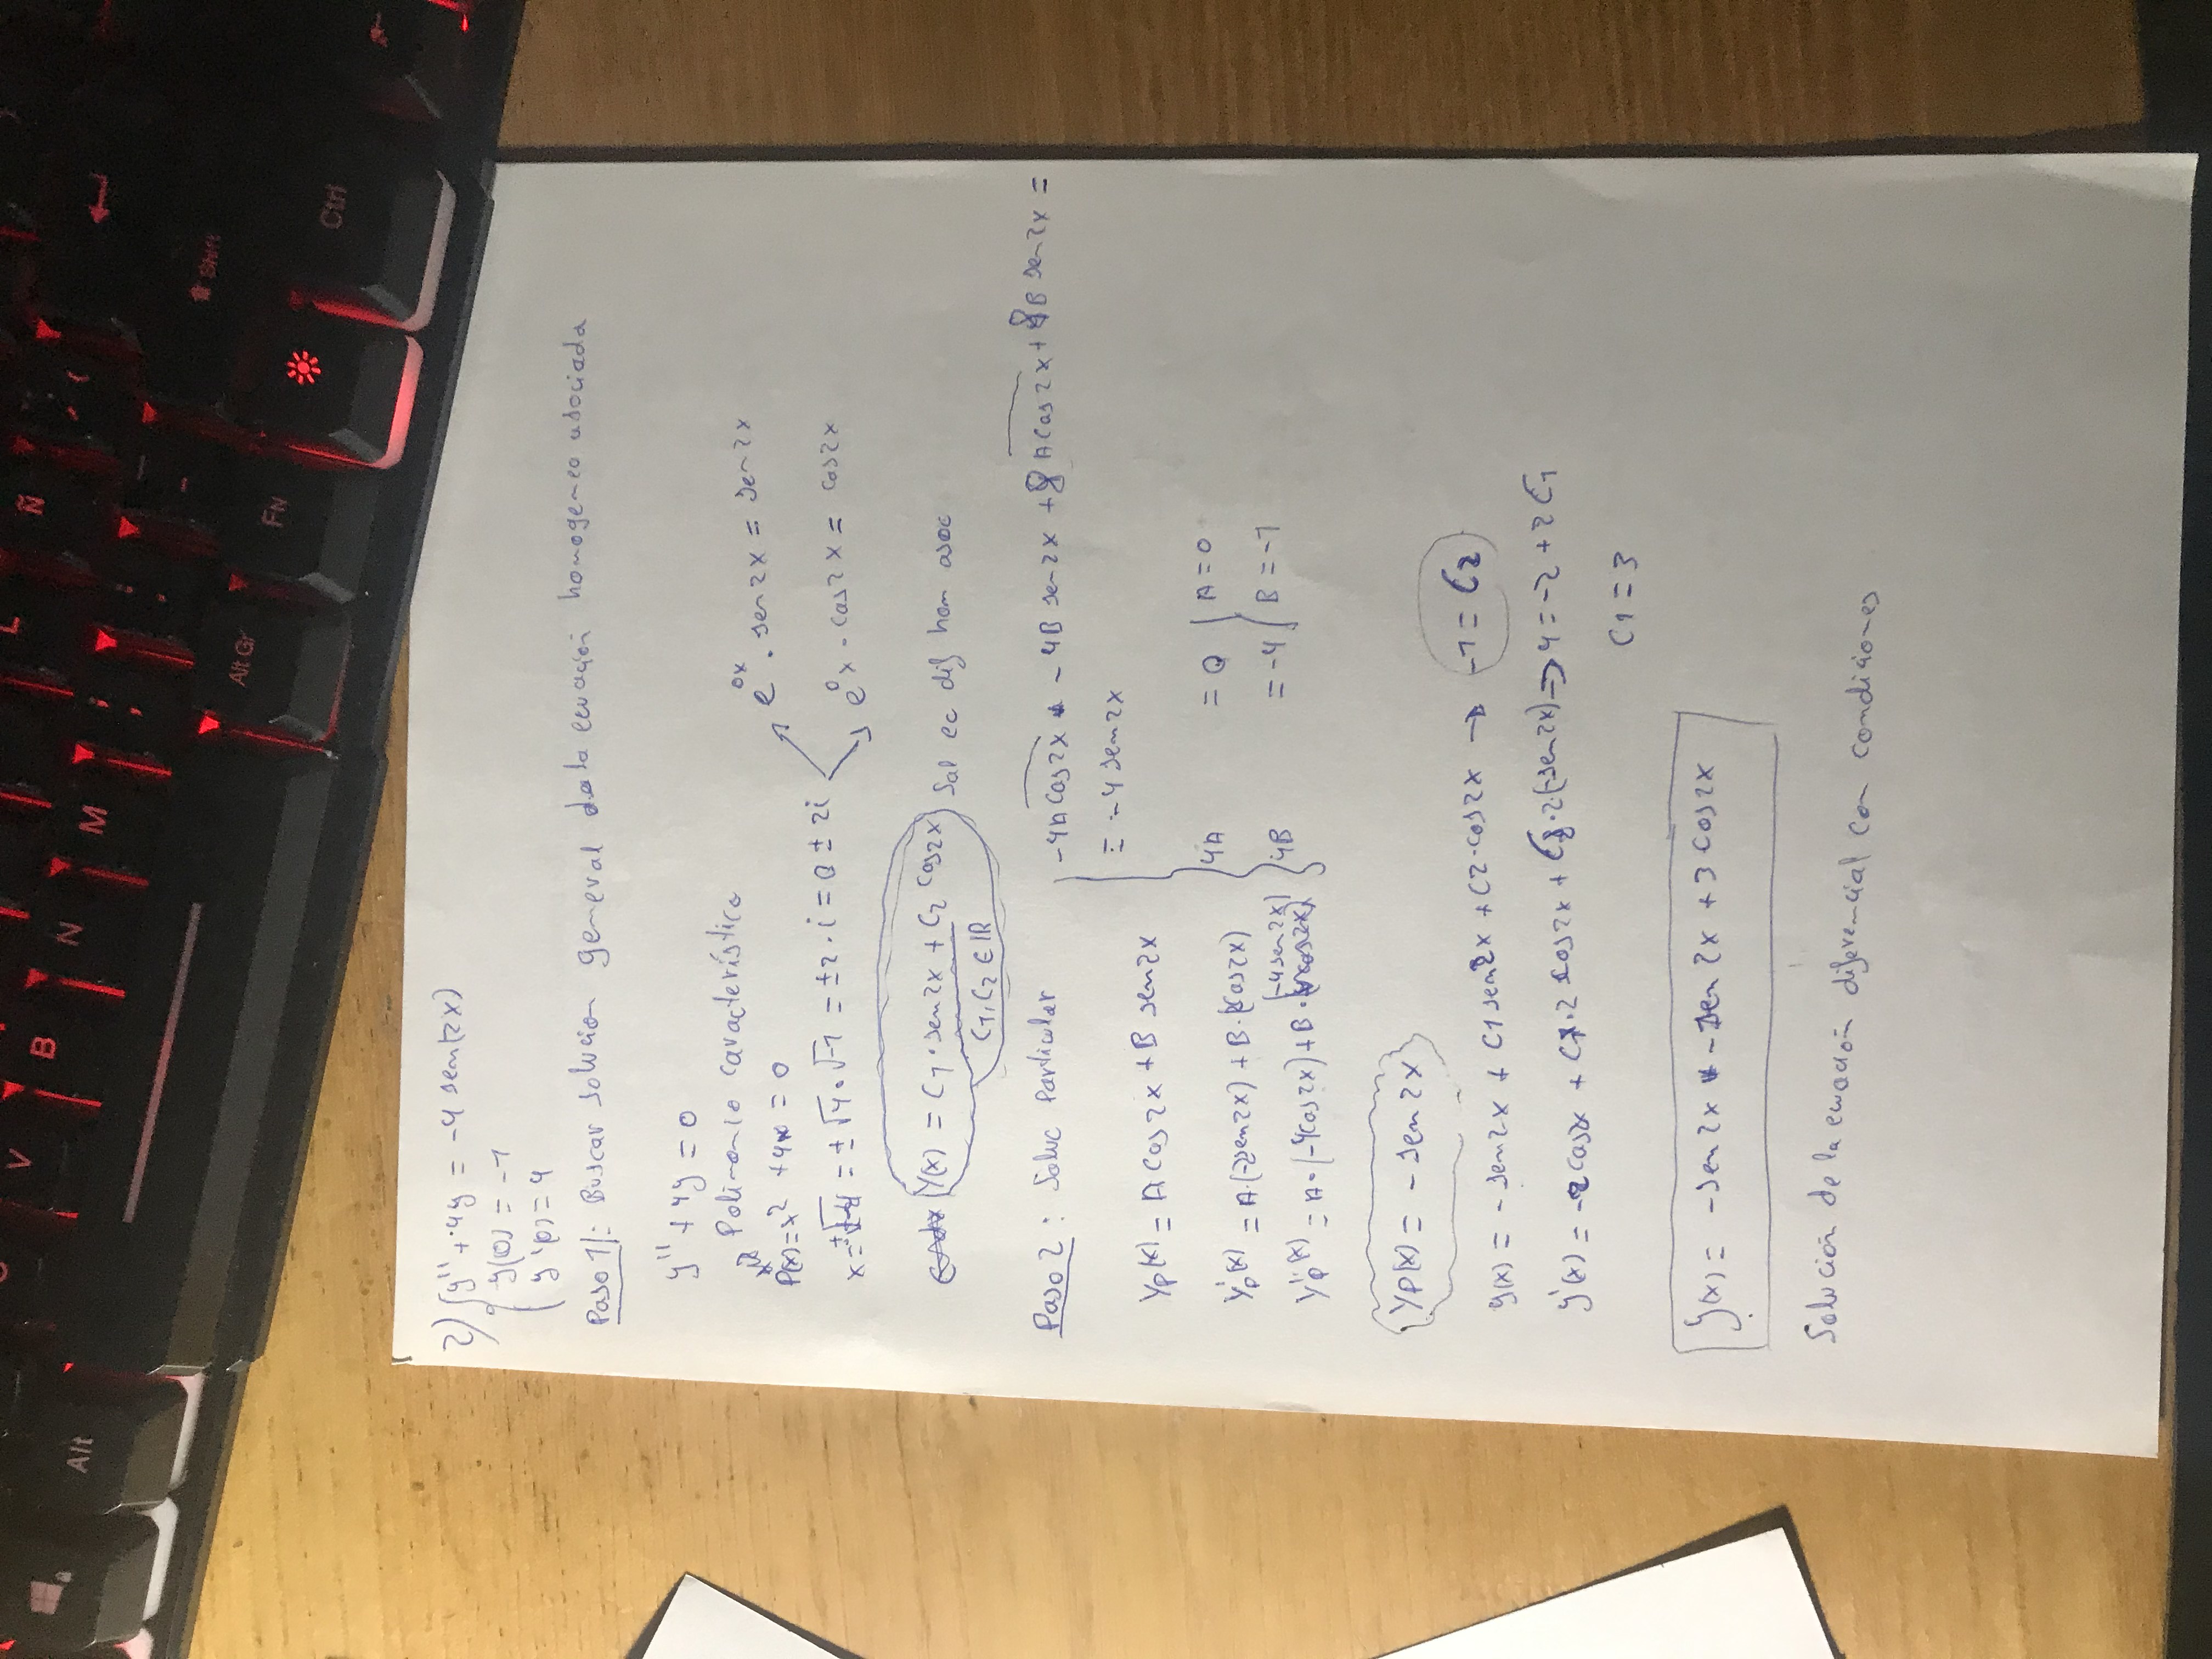 Alt
V
B
N
M
L
Ñ
;
,
:
.
-
Alt Gr
Fn
Shift
Ctrl
2) y'' + 4y = -4 sen(2x)
y(0) = -1
y'(0) = 4
Paso 1: Buscar solucion general de la ecuación homogenea asociada
y'' + 4y = 0
Polinomio característico
P(x) = x² + 4 = 0
x = ±√-4 = ±√4·√-1 = ±2·i = 0 ± 2i
e^0x · sen2x = sen2x
e^0x · cos2x = cos2x
Y(x) = C1·sen2x + C2 cos2x Sol ec dif hom asoc
C1, C2 ∈ IR
Paso 2: Soluc Particular
Yp(x) = A cos2x + B sen2x
Yp'(x) = A·(-2sen2x) + B·(2cos2x)
(-4sen2x)
Yp''(x) = A·(-4cos2x) + B·
-4A cos2x - 4B sen2x + 8 A cos2x + 8B sen2x =
= -4 sen2x
4A = 0 | A = 0
4B = -4 | B = -1
Yp(x) = - sen2x
y(x) = - sen2x + C1 sen2x + C2·cos2x → -1 = C2
y'(x) = -2 cos2x + C1·2 cos2x + C2·2·(-sen2x) => 4 = -2 + 2 C1
C1 = 3
y(x) = -sen2x - sen2x + 3 cos2x
Solución de la ecuación diferencial con condiciones